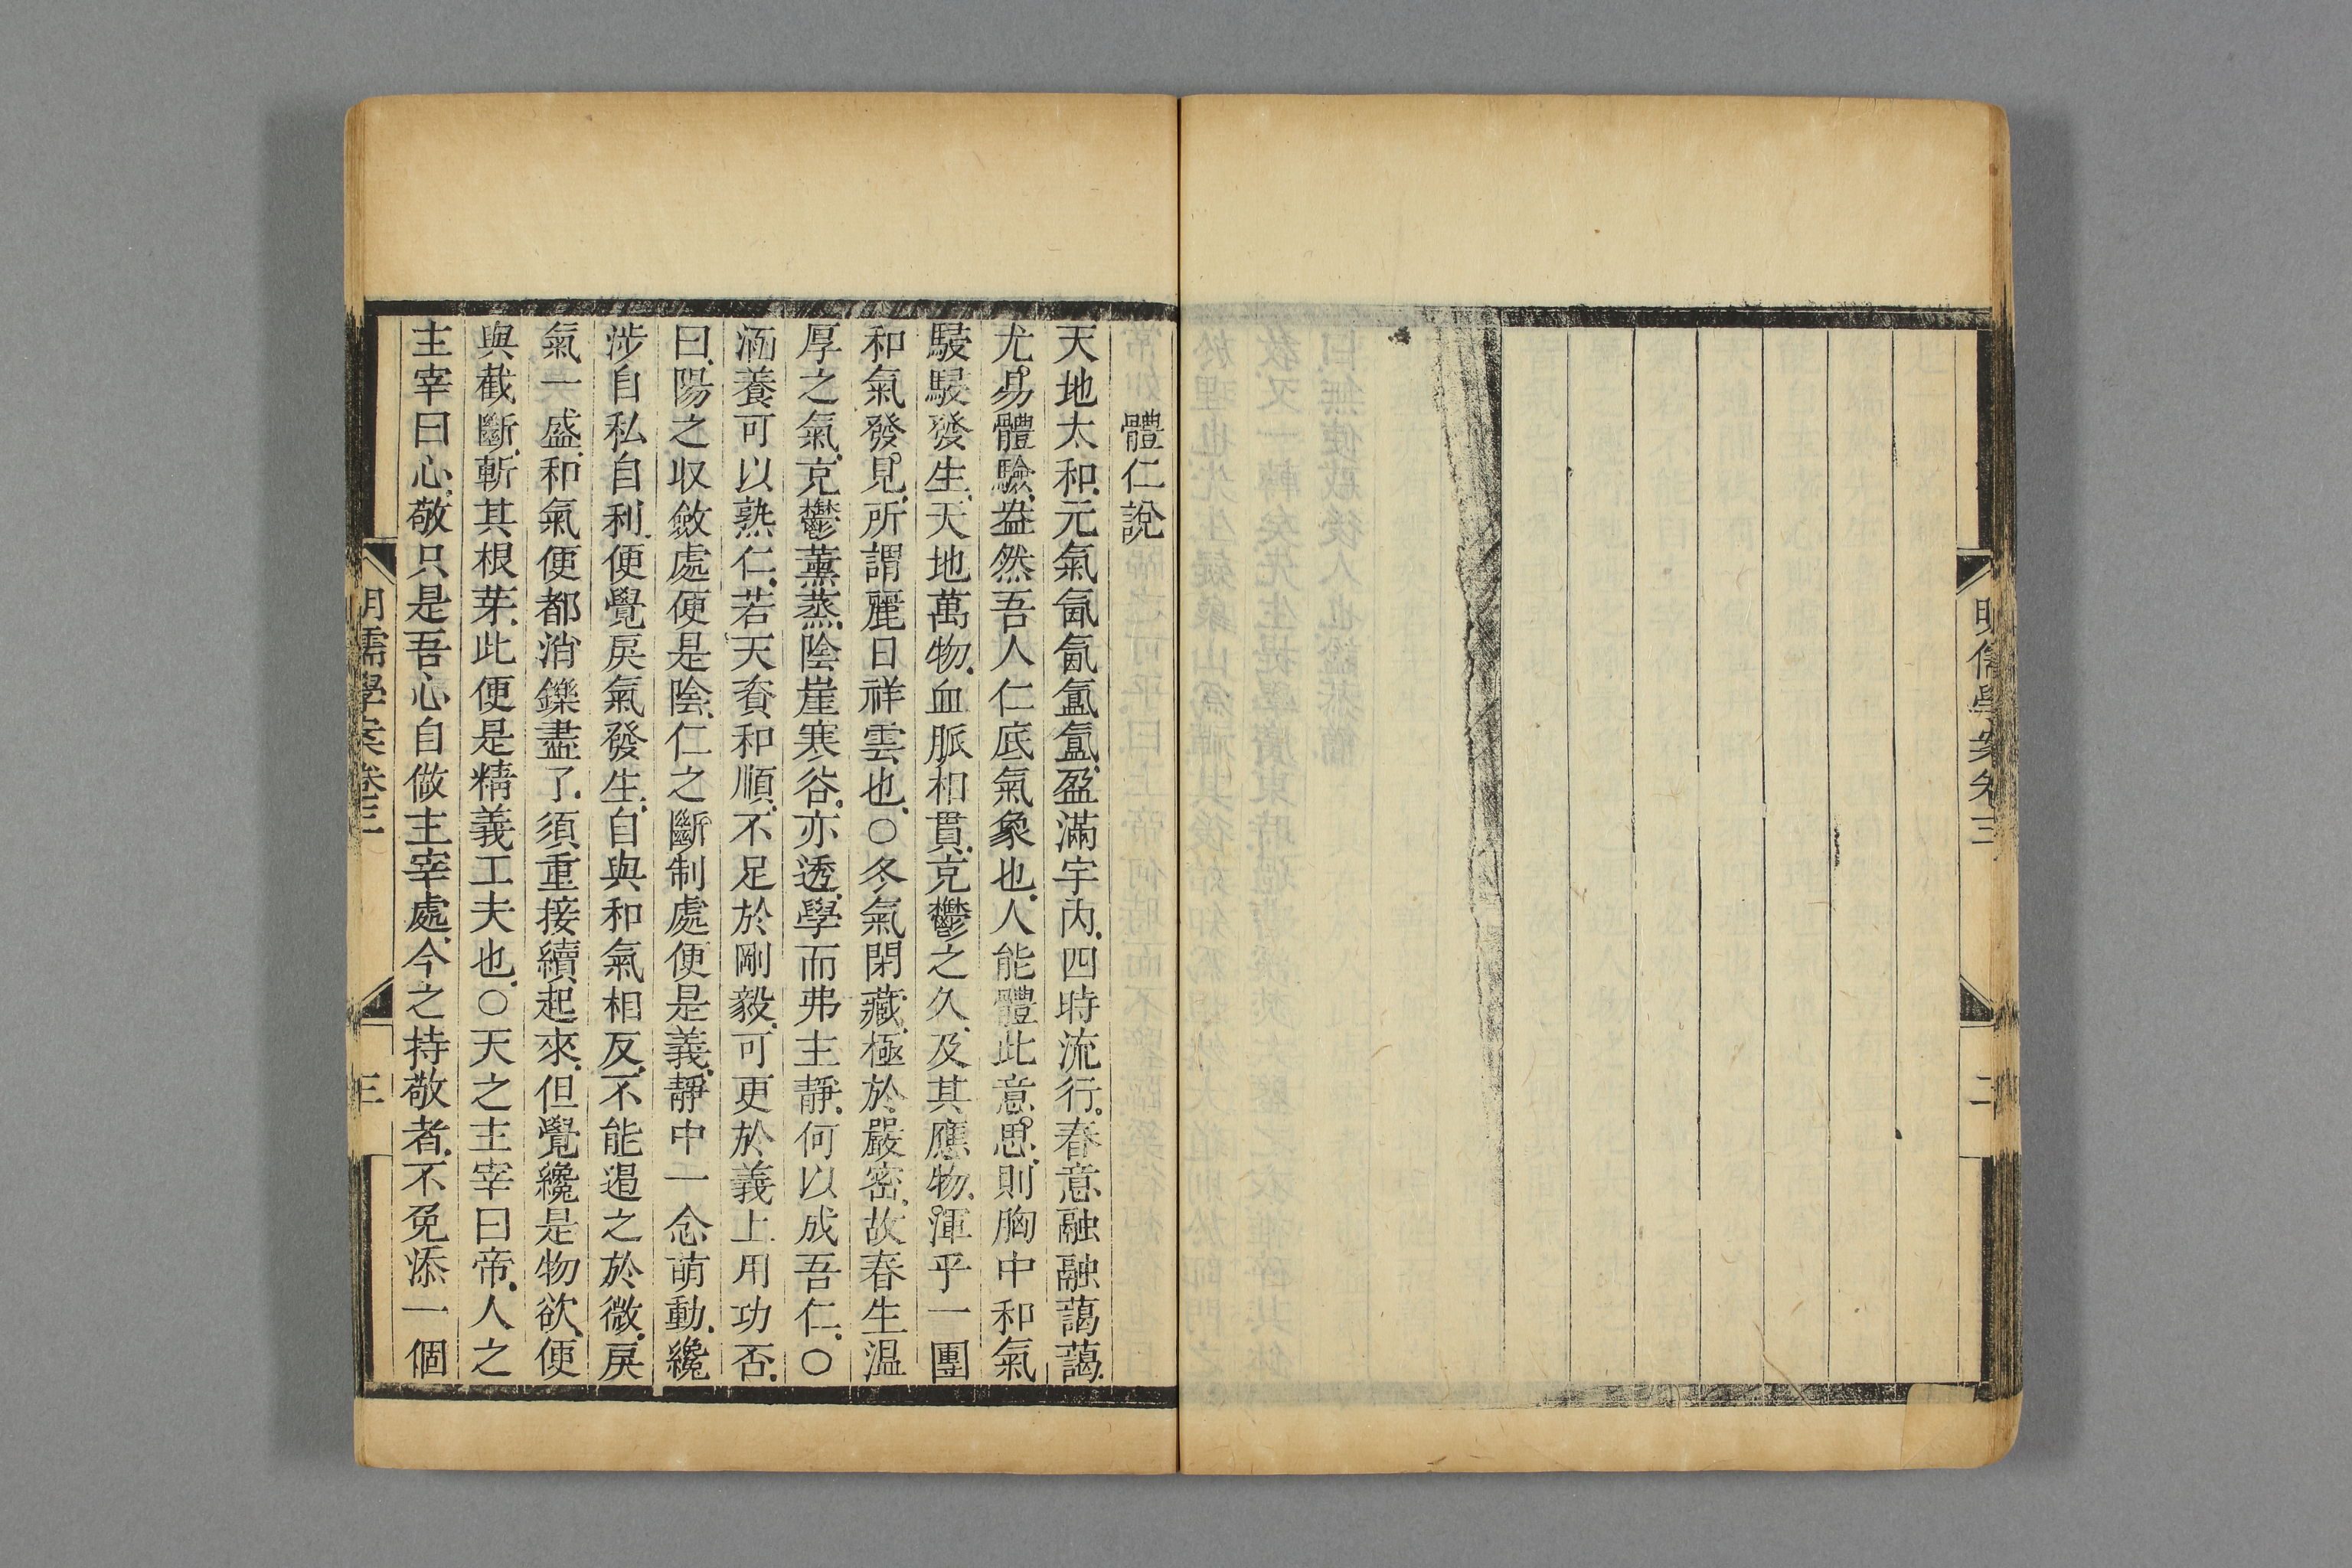 明儒學案卷三
二
體仁說
天地太和元氣氤氤氳氳盈滿宇內四時流行春意融融藹藹
尤易體驗盎然吾人仁底氣象也人能體此意思則胸中和氣
駸駸發生天地萬物血脈相貫充鬱之久及其應物渾乎一團
和氣發見所謂麗日祥雲也○冬氣閉藏極於嚴密故春生温
厚之氣充鬱薰蒸陰崖寒谷亦透學而弗主靜何以成吾仁○
涵養可以熟仁若天資和順不足於剛毅可更於義上用功否
曰陽之收斂處便是陰仁之斷制處便是義靜中一念萌動纔
涉自私自利便覺戾氣發生自與和氣相反不能遏之於微戾
氣一盛和氣便都消鑠盡了須重接續起來但覺纔是物欲便
與截斷斬其根芽此便是精義工夫也○天之主宰曰帝人之
主宰曰心敬只是吾心自做主宰處今之持敬者不免添一個
明儒學案卷三
三